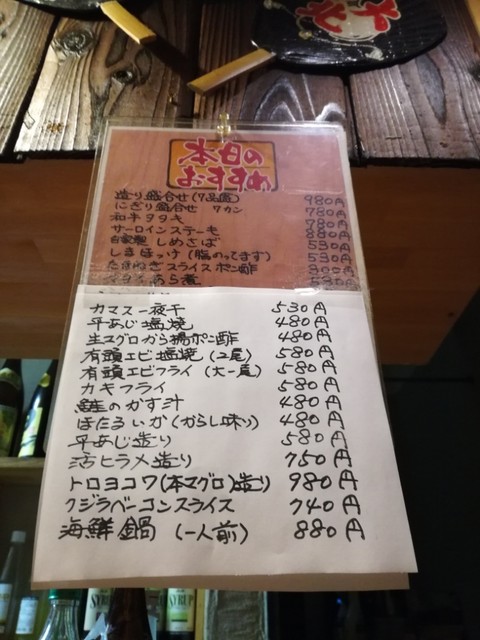 本日の
おすすめ
造り盛合せ(7品盛) 980円
にぎり盛合せ 7カン 780円
和牛タタキ 780円
サーロインステーキ 880円
自家製 しめさば 530円
しまほっけ(脂のってます) 530円
たまねぎスライスポン酢 300円
あら煮
カマス一夜干 530円
平あじ塩焼 480円
生マグロから揚ポン酢 480円
有頭エビ塩焼(2尾) 580円
有頭エビフライ(大一尾) 580円
カキフライ 580円
鮭のかす汁 480円
ほたるいか(からし味噌) 480円
平あじ造り 580円
活ヒラメ造り 750円
トロヨコワ(本マグロ)造り 980円
クジラベーコンスライス 740円
海鮮鍋 (一人前) 880円